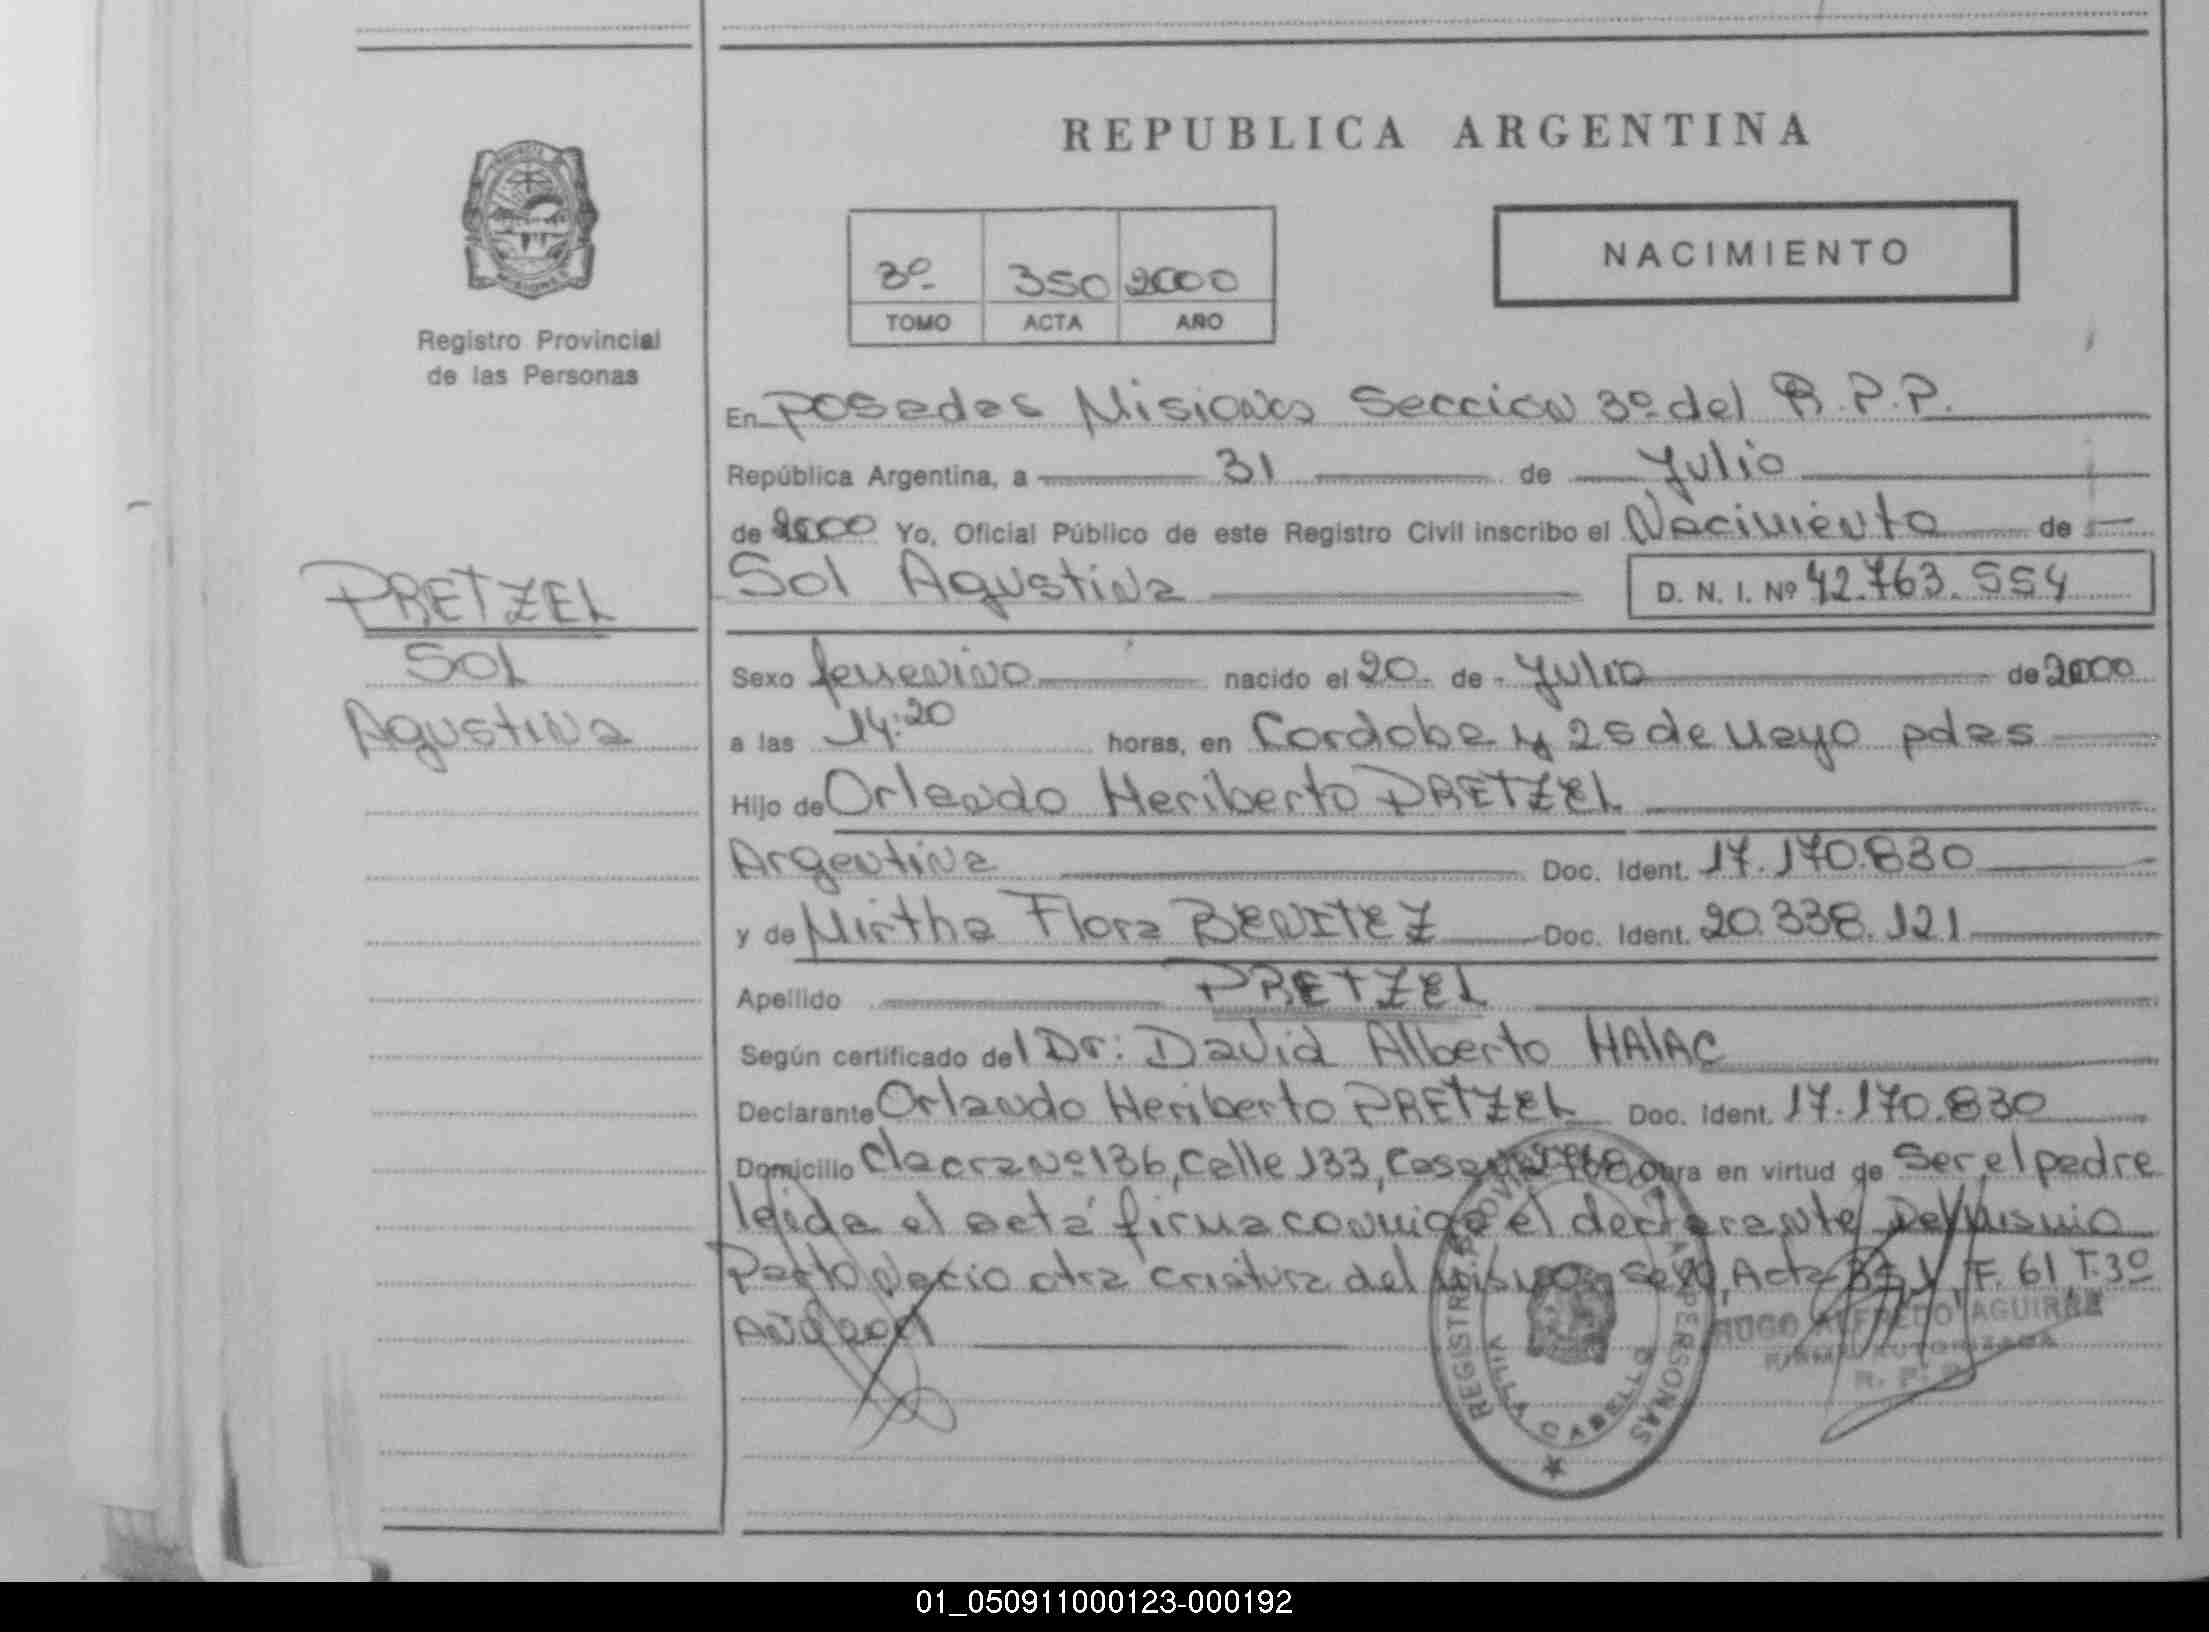 REPUBLICA ARGENTINA
3º 350 2000
TOMO ACTA AÑO
NACIMIENTO
Registro Provincial
de las Personas
PRETZEL
SOL
Agustina
En Posadas Misiones Sección 3º del R.P.P.
República Argentina, a 31 de Julio
de 2000 Yo, Oficial Público de este Registro Civil inscribo el Nacimiento de
Sol Agustina D. N. I. Nº 42.763.554
Sexo femenino nacido el 20 de Julio de 2000
a las 14:20 horas, en Cordoba y 25 de Mayo pdas
Hijo de Orlando Heriberto PRETZEL
Argentina Doc. Ident. 17.170.830
y de Mirtha Flora BENITEZ Doc. Ident. 20.338.121
Apellido PRETZEL
Según certificado del Dr: David Alberto HALAC
Declarante Orlando Heriberto PRETZEL Doc. Ident. 17.170.830
Domicilio Chacra Nº 136, Calle 133, Casa obra en virtud de Ser el padre
leída el acta firma conmigo el declarante Del mismo
Parto Nacio otra criatura del mismo sexo, Acta F. 61 T. 3º
Año
REGISTRO PROVINCIAL DE LAS PERSONAS
VILLA CABELLO
HUGO ALFREDO AGUIRRE
FIRMA AUTORIZADA
R. P. P.
01_050911000123-000192